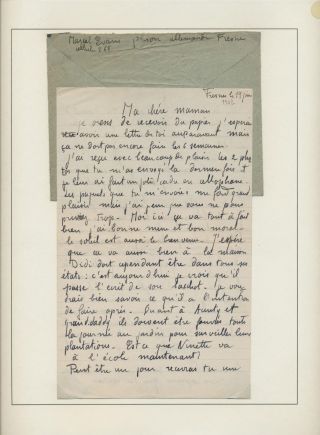 Marcel Evain prison allemande Fresnes
cellule 268
Fresnes le 19 juin
1942
Ma chère maman
je viens de recevoir du papier, j'espère
avoir une lettre de toi auparavant mais
ça ne doit pas encore faire les 6 semaines.
J'ai reçu avec beaucoup de plaisir les 2 plus
que tu m'as envoyé la dernière fois et
je leur ai fait un joli cadre en
les paquets que tu m'envoies me font grand
plaisir mais j'ai peur que vous ne vous
priviez trop. Moi ici ça va tout à fait
bien, j'ai bonne mine et bon moral.
le soleil est aussi le bienvenu. J'espère
que ça va aussi bien à la maison
Didi doit cependant être dans tous ses
états : c'est aujourd'hui je crois qu'il
passe l'écrit de son bachot. Je vou
drais bien savoir ce qu'il a l'intention
de faire après. Quant à Aunty et
granddaddy ils doivent être fourrés toute
la journée au jardin pour surveiller leurs
plantations. Est ce que Ninette va
à l'école maintenant?
Peut être un jour recevrai tu une